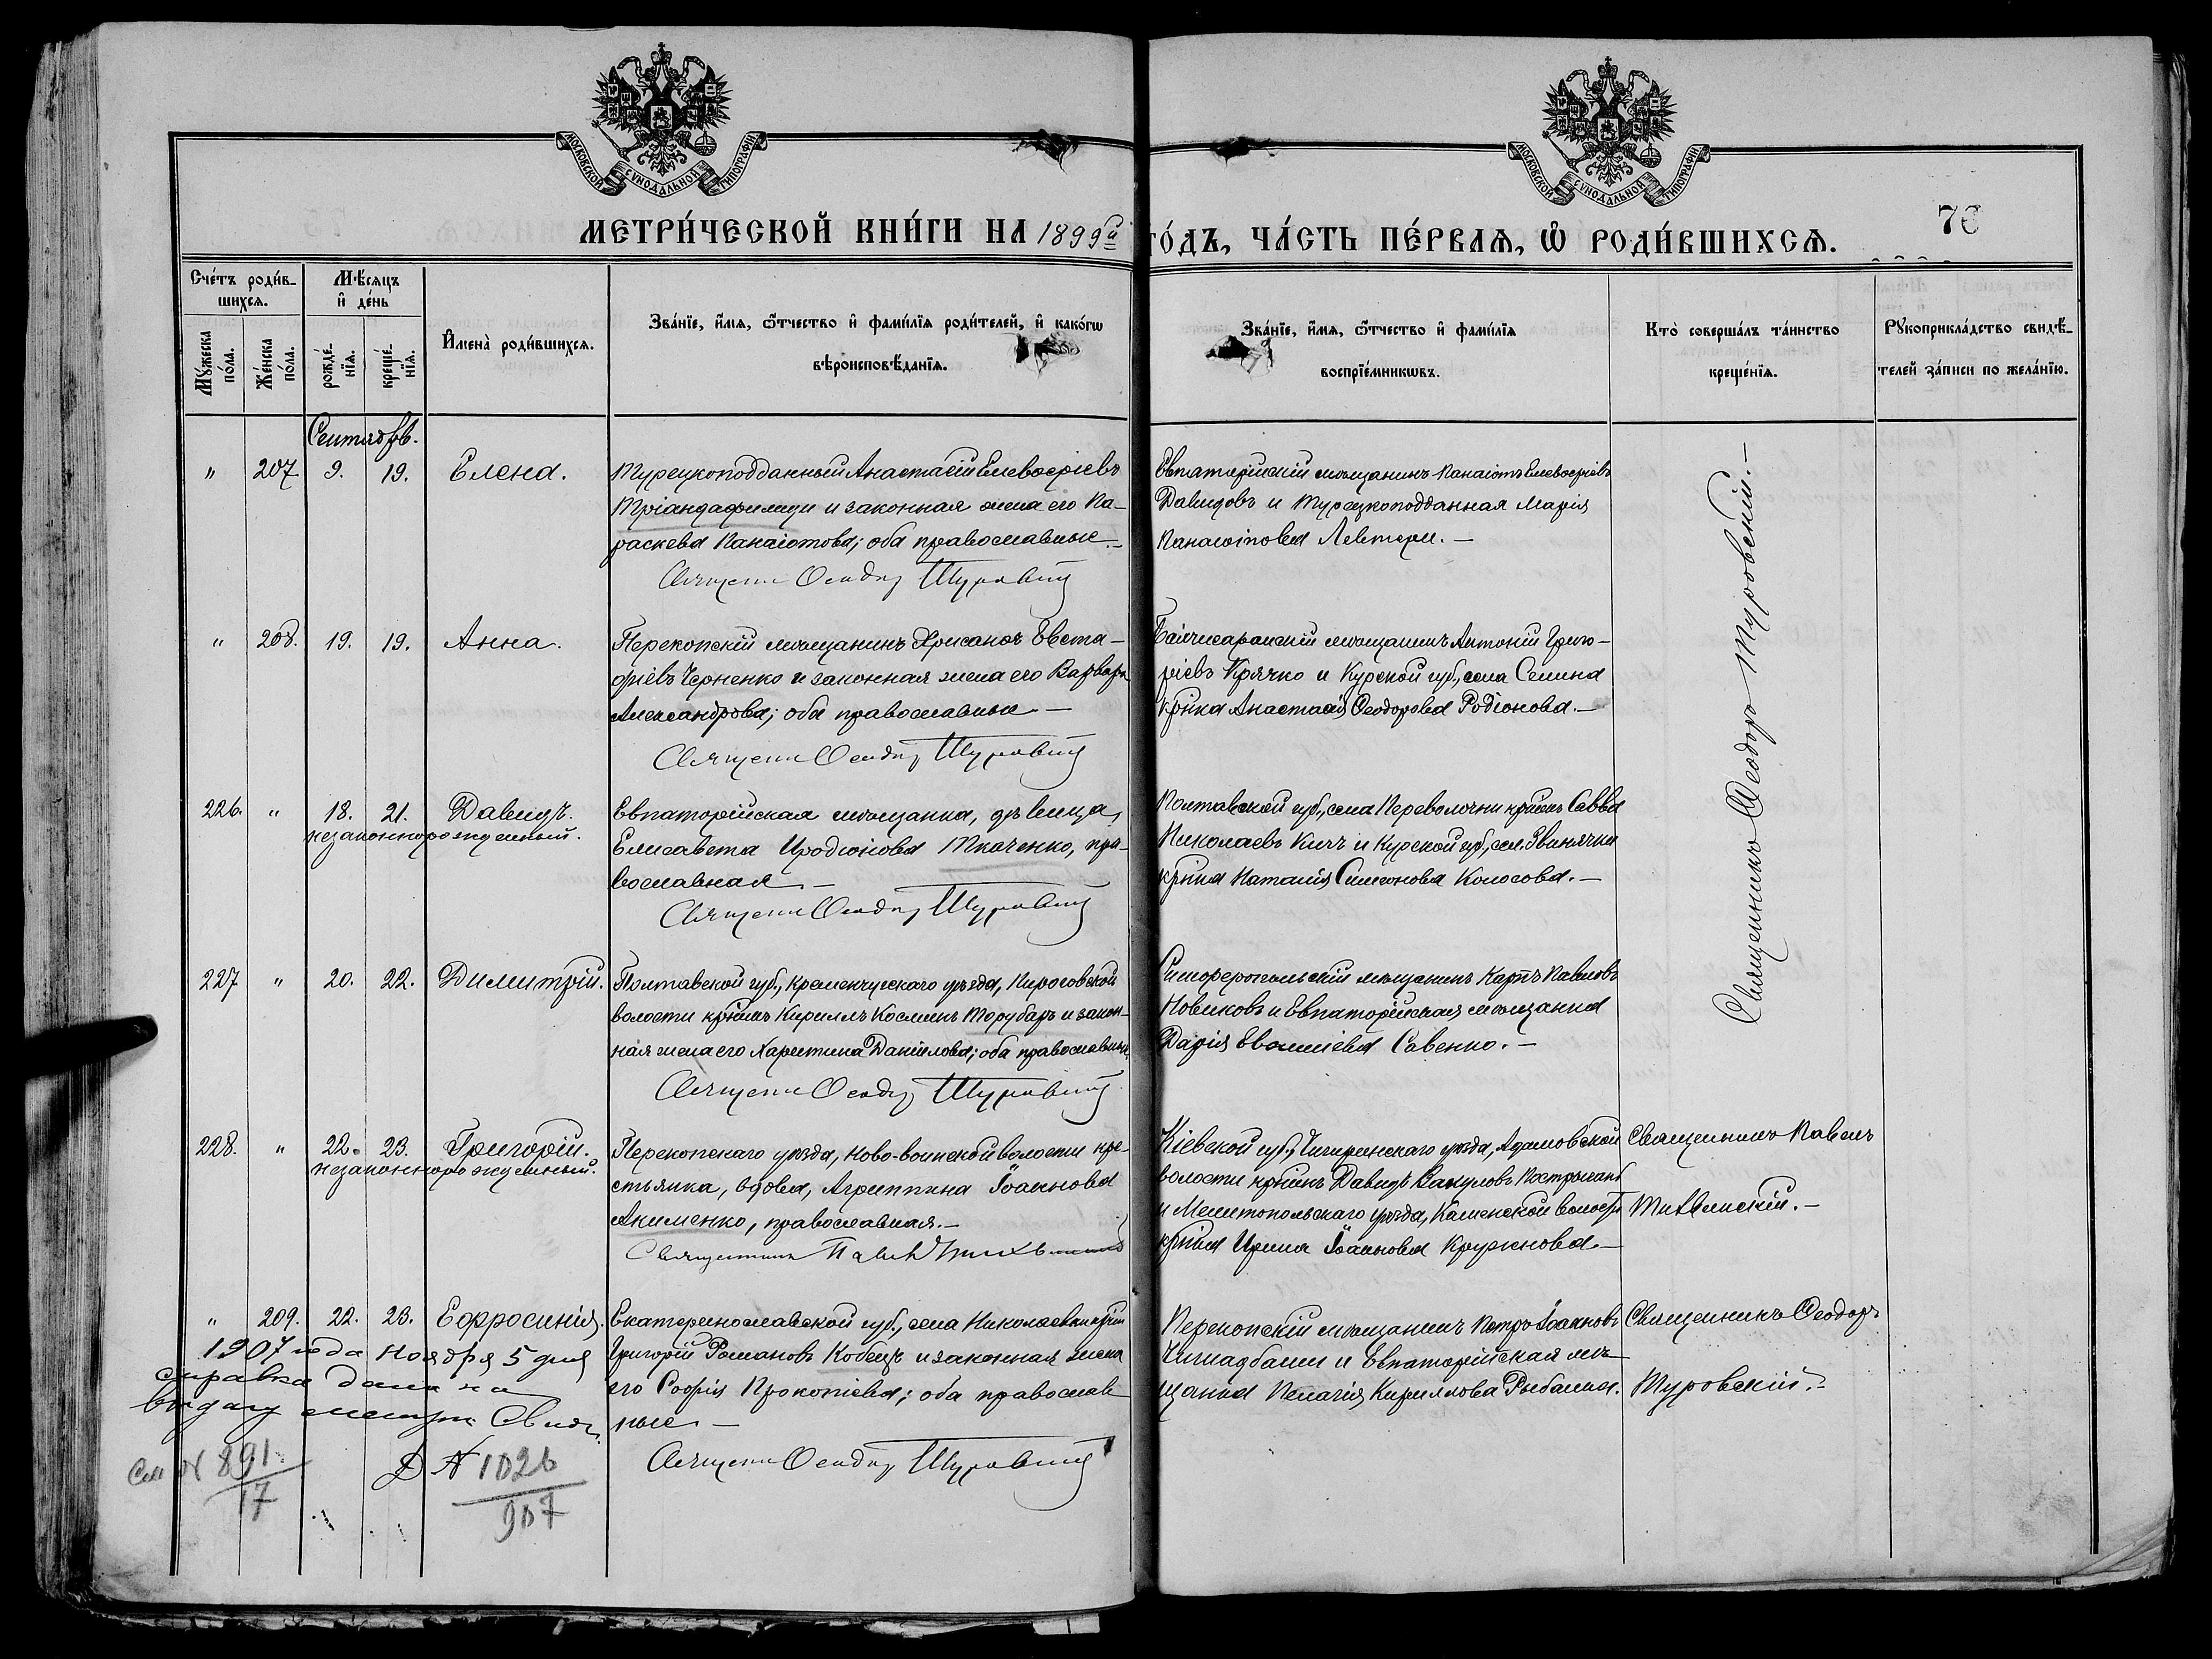 МОСКОВСКОЙ СѴНОДАЛЬНОЙ ТИПОГРАФІИ
МОСКОВСКОЙ СѴНОДАЛЬНОЙ ТИПОГРАФІИ
МЕТРИ́ЧЕСКОЙ КНИ́ГИ НА 1899й
ГО́ДЪ, ЧА́СТЬ ПЕ́РВАѦ, Ѡ҆ РОДИ́ВШИХСѦ.
76
Сче́тъ роди́в-
шихсѧ.
Мѣ́сѧцъ
и҆ де́нь
Мꙋ́жеска по́ла.
Же́нска по́ла.
рожде́-
нїѧ.
креще́-
нїѧ.
И҆мена̀ роди́вшихсѧ.
Зва́нїе, и҆́мѧ, ѻ҆́тчество и҆ фами́лїѧ роди́телей, и҆ како́гѡ
вѣроисповѣ́данїѧ.
Зва́нїе, и҆́мѧ, ѻ҆́тчество и҆ фами́лїѧ
воспрїе́мникѡвъ.
Кто̀ соверша́лъ та́инство
креще́нїѧ.
Рꙋкоприкла́дство свидѣ́-
телей за́писи по жела́нїю.
Сентябрь.
" 207. 9. 19. Елена.
Турецкоподданный Анастасій Елевѳеріевъ
Тріандафилиди и законная жена его Па-
раскева Панаіотова; оба православные.-
Священ Ѳеодор Туровскій
Евпаторійскій мѣщанинъ Панаіотъ Елевѳеріевъ
Давидовъ и Турецкоподданная Марія
Панаіотова Левтери.-
" 208. 19. 19. Анна.
Перекопскій мѣщанинъ Хрисанѳъ Евста-
фіевъ Черненко и законная жена его Варвара
Александрова; оба православные.-
Священ Ѳеодор Туровскій
Бахчисарайскій мѣщанинъ Антоній Григо-
ріевъ Крячко и Курской губ., села Сеmина
кр-нка Анастасія Ѳеодорова Родіонова.-
226. " 18. 21. Давидъ.
незаконнорожденный.
Евпаторійская мѣщанка, дѣвица,
Елисавета Иродіонова Ткаченко, пра-
вославная.-
Священ Ѳеодор Туровскій
Полтавской губ., села Переволочни кр-нинъ Савва
Николаевъ Кичъ и Курской губ., сел. Звинячки
кр-нка Наталія Симеонова Колосова.-
227. " 20. 22. Димитрій.
Полтавской губ., Кременчугскаго уѣзда, Пироговской
волости кр-нинъ Кириллъ Косминъ Торубаръ и закон-
ная жена его Харитина Даніилова; оба православные.
Священ Ѳеодор Туровскій
Симферопольскій мѣщанинъ Карпъ Павловъ
Новиковъ и Евпаторійская мѣщанка
Дарія Евѳиміева Савенко.-
Священникъ Ѳеодоръ Туровскій.-
228. " 22. 23. Григорій.
незаконнорожденный.
Перекопскаго уѣзда, Ново-воинской волости кре-
стьянка, вдова, Агриппина Іоаннова
Акименко, православная.-
Священникъ Павел
Кіевской губ., Чигиринскаго уѣзда, Адамовской
волости кр-нинъ Давидъ Вакуловъ
и Мелитопольскаго уѣзда, Каменской волости
кр-нка Ирина Іоаннова Кружнова.-
Священникъ Павелъ
Тихвинскій.-
" 209. 22. 23. Евфросинія.
Екатеринославской губ., села Николаевки кр-нинъ
Григорій Романовъ Кобецъ и законная жена
его Софія Прокопіева; оба православ-
ные.-
Священ Ѳеодор Туровскій
Перекопскій мѣщанинъ Петръ Іоанновъ
Чигиадбаши и Евпаторійская мѣ-
щанка Пелагія Кириллова Рыбалка.
Священникъ Ѳеодоръ
Туровскій.-
1907 года Ноября 5 дня
справка дана на
выдачу метрич. Свид.
См № 891/17
Д № 1026/907